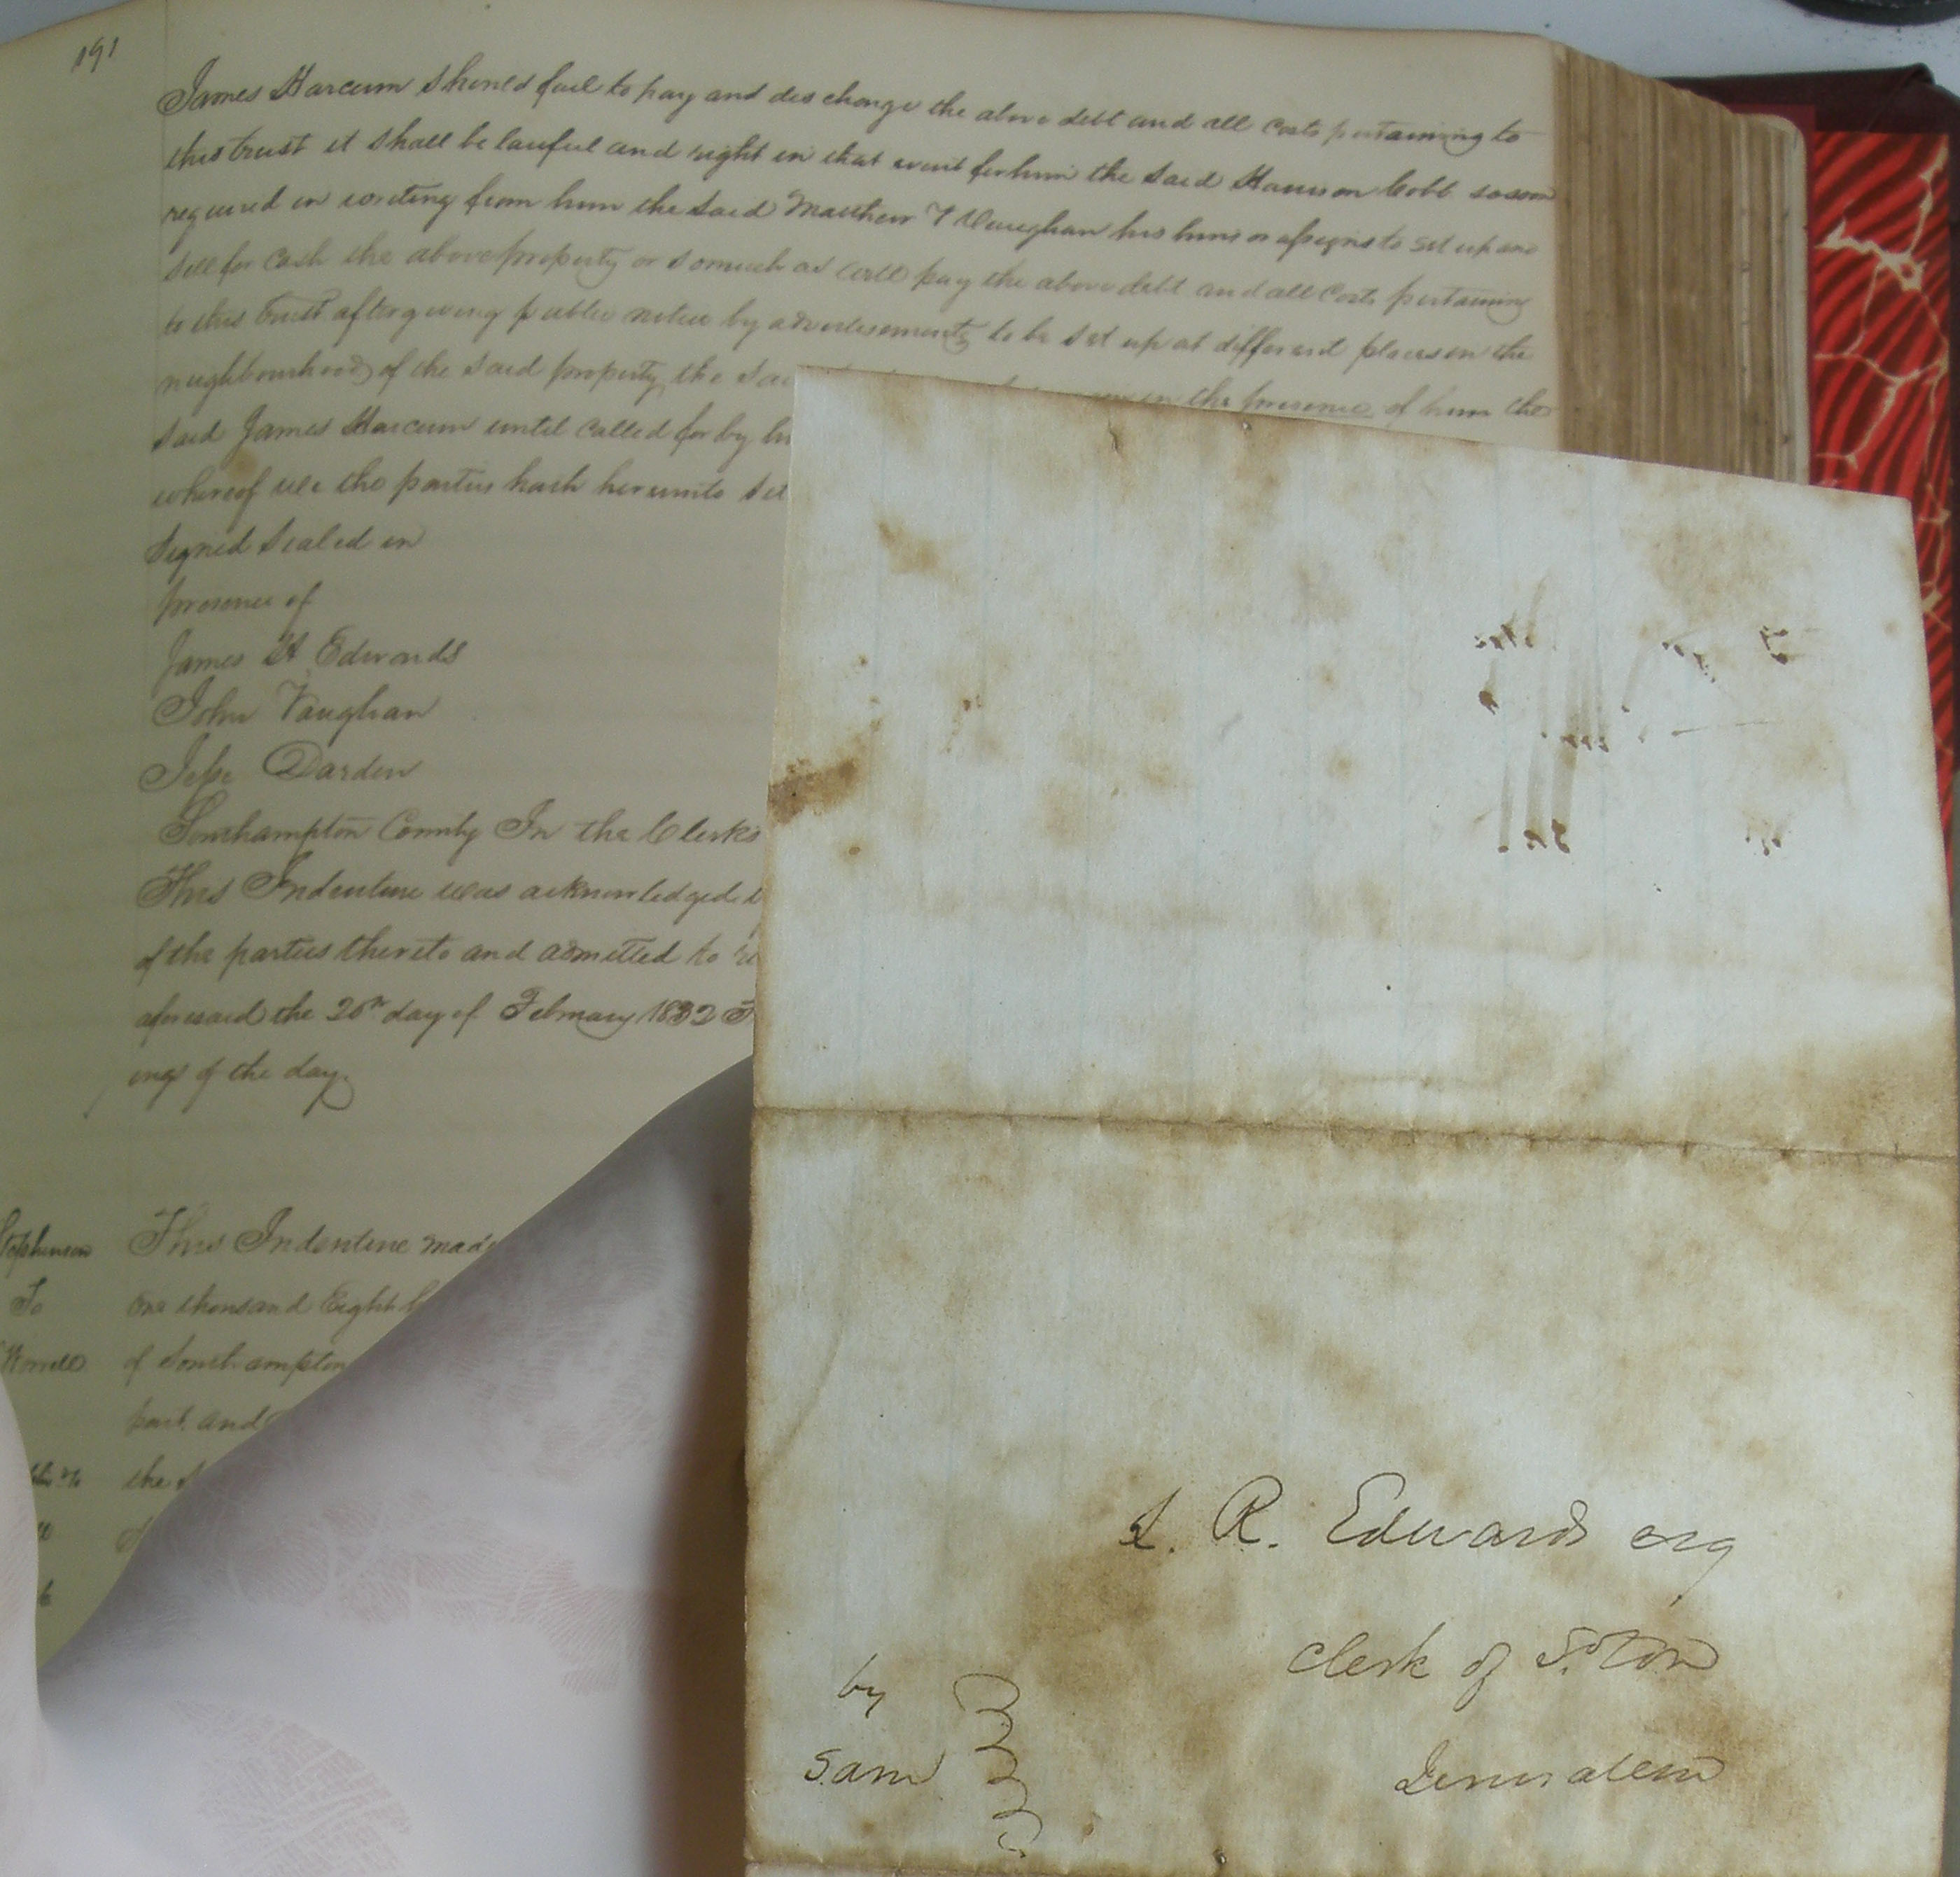 191
James Harcum should fail to pay and discharge the above debt and all costs pertaining to
this trust it shall be lawful and right in that event for him the said Harrison Cobb so soon
required in writing from him the said Matthew T Vaughan his heirs or assigns to set up and
sell for cash the above property or so much as will pay the above debt and all costs pertaining
to this trust after giving public notice by advertisements to be set up at different places in the
neighbourhood of the said property the in the presence of him the
said James Harcum until called for by
whereof we the parties hath hereunto set
signed sealed in
presence of
James H Edwards
John Vaughan
Jesse Darden
Southampton County In the Clerks
This Indenture was acknowledged
of the parties thereto and admitted to
aforesaid the 20th day of February 1832
ings of the day
Stephenson This Indenture made
To one thousand Eight
Worrell of Southampton
part and
the
L. R. Edwards esq
Clerk of S.ton
Jerusalem
by
Sam